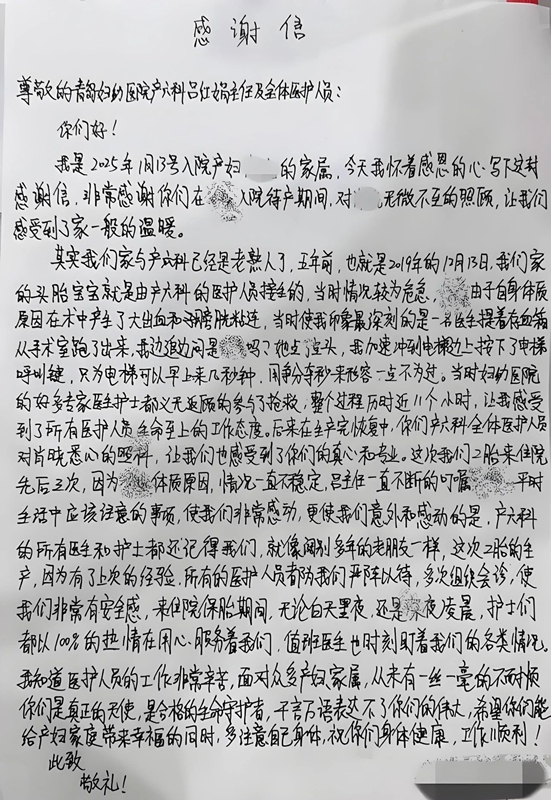 感谢信
尊敬的青岛妇幼医院产六科吕红娟主任及全体医护人员:
你们好!
我是2025年1月13号入院产妇 的家属,今天我怀着感恩的心写下这封
感谢信,非常感谢你们在 入院待产期间,对 无微不至的照顾,让我们
感受到了家一般的温暖。
其实我们家与产六科已经是老熟人了,五年前,也就是2019年的12月13日,我们家
的头胎宝宝就是由产六科的医护人员接生的,当时情况较为危急, 由于自身体质
原因在术中产生了大出血和子膀胱粘连,当时使我印象最深刻的是一名医生提着存血箱
从手术室跑了出来,我边追边问是 吗?她点了点头,我加速冲到电梯边上按下了电梯
呼叫键,只为电梯可以早上来几秒钟,用争分夺秒来形容一点不为过。当时妇幼医院
的好多专家医生护士都义无返顾的参与了抢救,整个过程历时近11个小时,让我感受
到了所有医护人员生命至上的工作态度。后来在生产完恢复中,你们产六科全体医护人员
对片晓悉心的照料,让我们也感受到了你们的真心和专业。这次我们2胎来住院
先后三次,因为 体质原因,情况一直不稳定,吕主任一直不断的叮嘱 平时
生活中应该注意的事项,使我们非常感动,更使我们意外和感动的是,产六科
的所有医生和护士都还记得我们,就像阔别多年的老朋友一样,这次2胎的生
产,因为有了上次的经验,所有的医护人员都为我们严阵以待,多次组织会诊,使
我们非常有安全感,来住院保胎期间,无论白天黑夜,还是深夜凌晨,护士们
都以100%的热情在用心服务着我们,值班医生也时刻盯着我们的各类情况。
我知道医护人员的工作非常辛苦,面对众多产妇、家属,从未有一丝一毫的不耐烦
你们是真正的天使,是合格的生命守护者,千言万语表达不了你们的伟大,希望你们能
给产妇家庭带来幸福的同时,多注意自己身体,祝你们身体健康,工作顺利!
此致
敬礼!